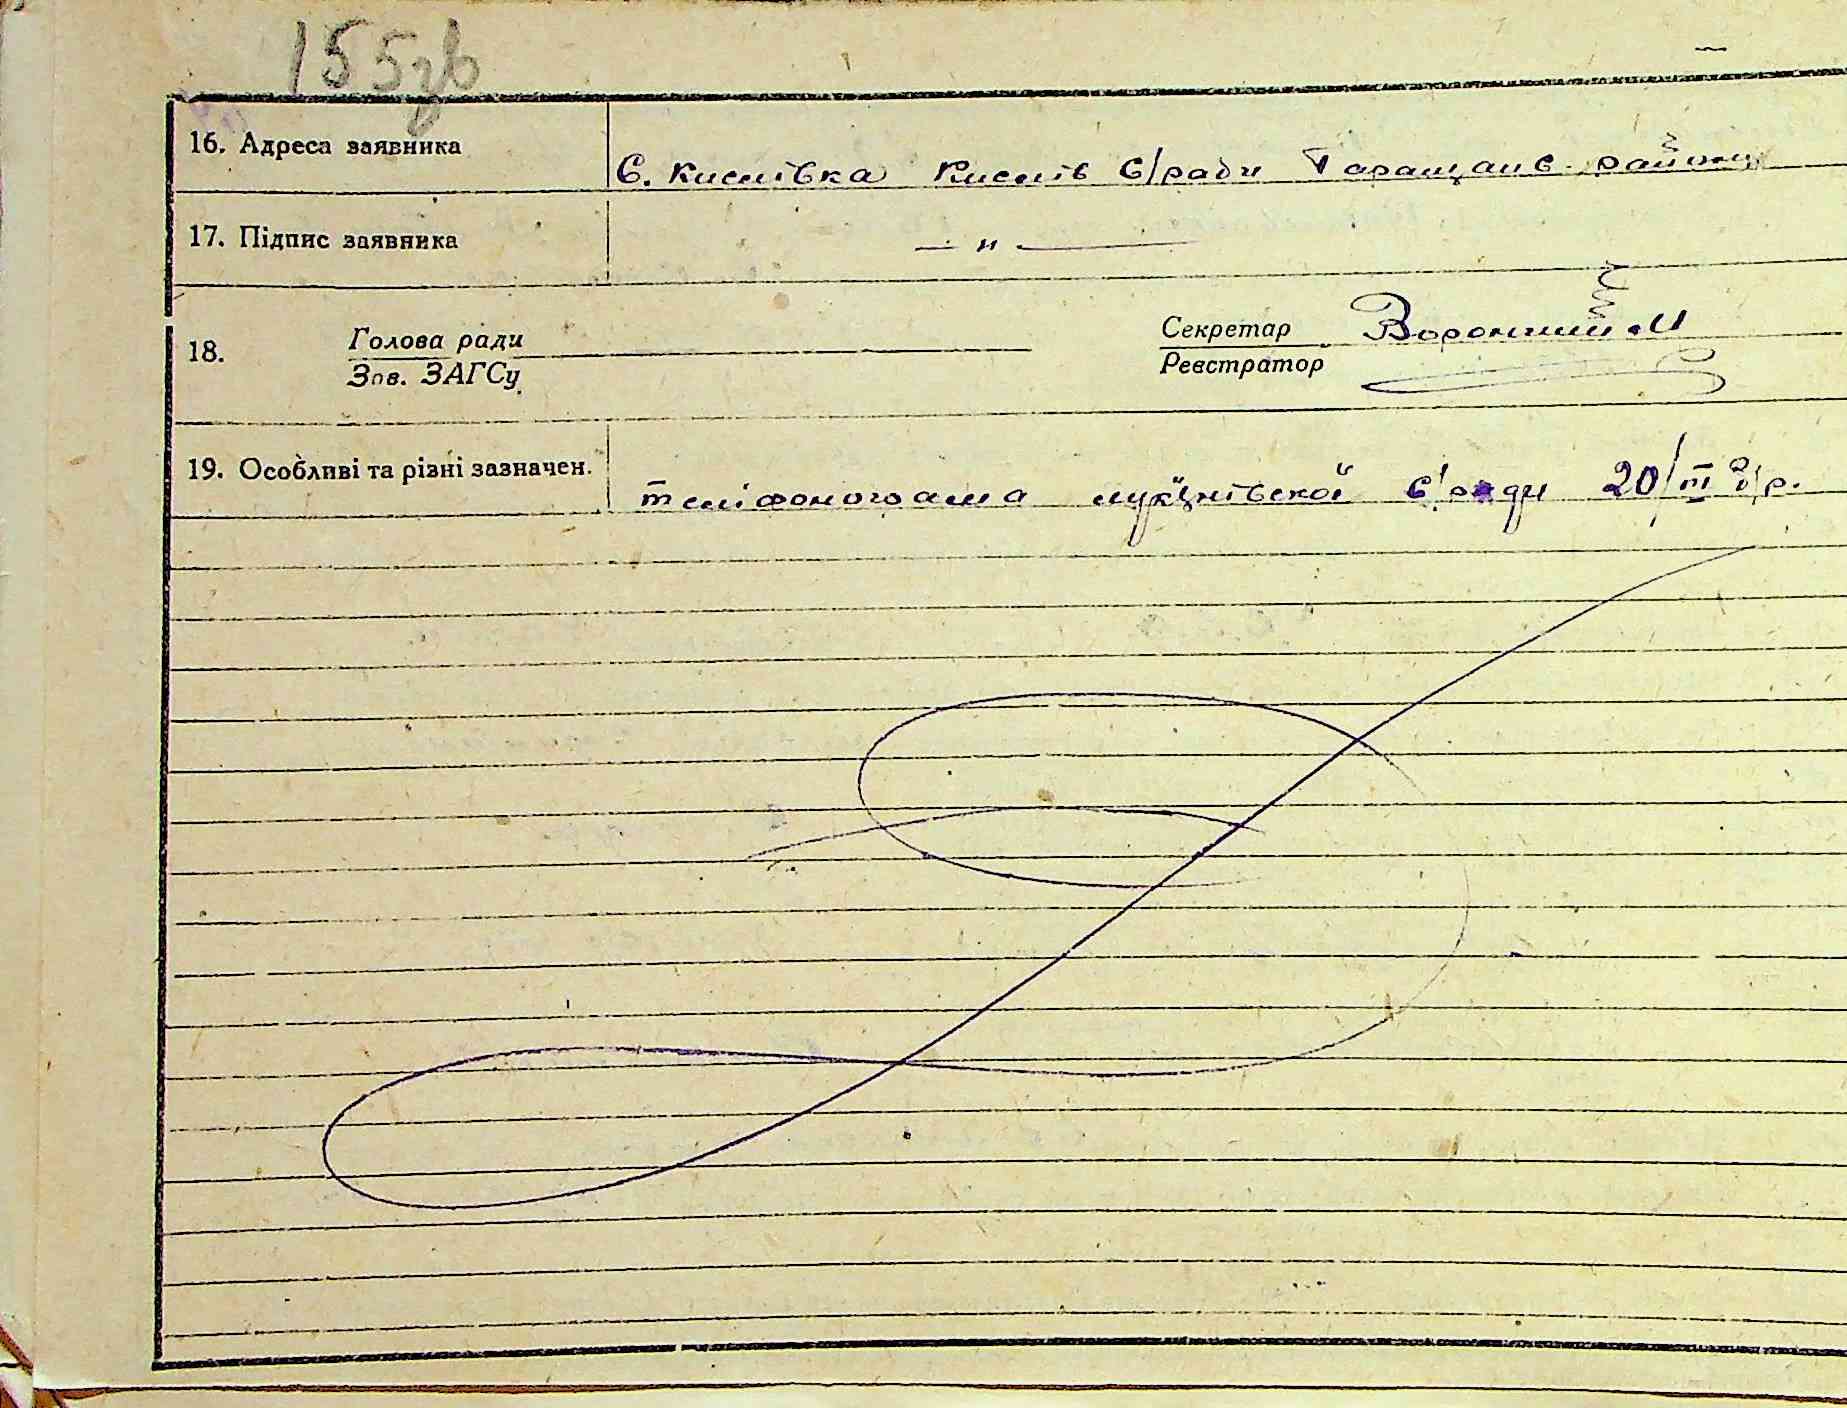 155зв
16. Адреса заявника
С. Кислівка Кислів с/ради Таращанс. району
17. Підпис заявника
— " —
18. Голова ради
Зав. ЗАГСу
Секретар
Реєстратор
19. Особливі та різні зазначен.
теліфонограма с/ради 20/III р.